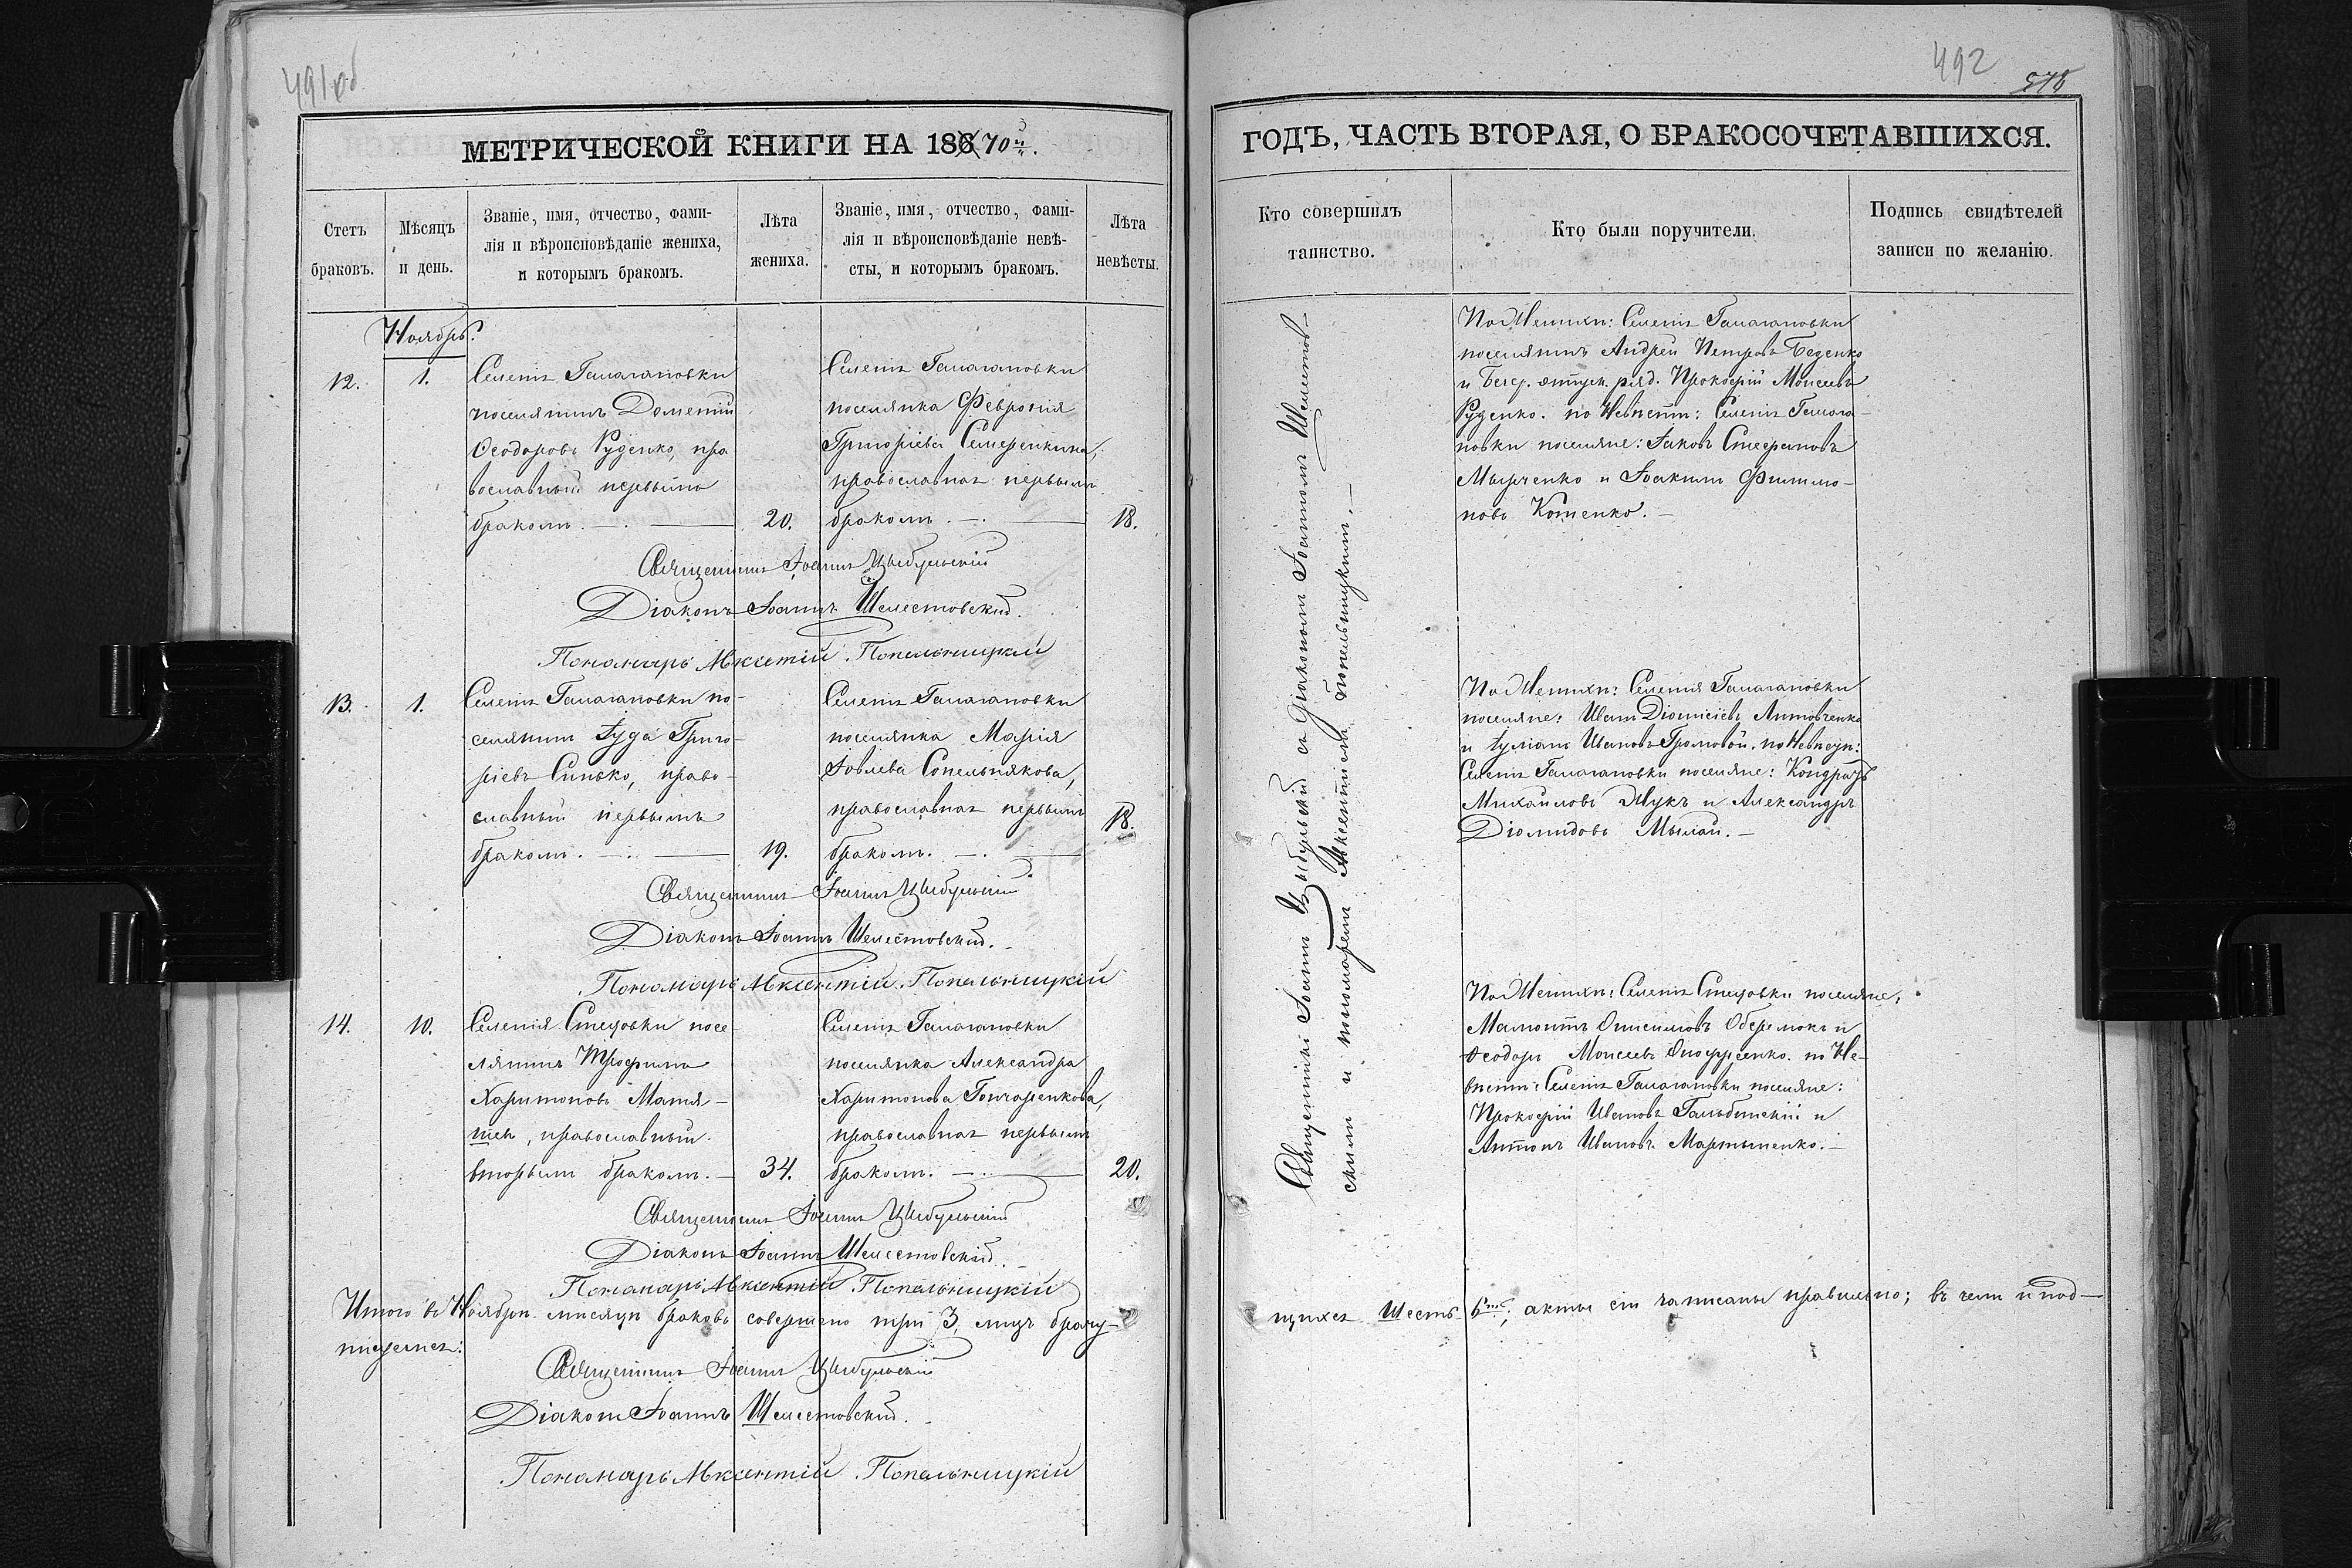 491об
МЕТРИЧЕСКОЙ КНИГИ НА 186 70й.
Счетъ браковъ.
Мѣсяцъ и день.
Званіе, имя, отчество, фами-
лія и вѣроисповѣданіе жениха,
и которымъ бракомъ.
Лѣта
жениха.
Званіе, имя, отчество, фами-
лія и вѣроисповѣданіе невѣ-
сты, и которымъ бракомъ.
Лѣта
невѣсты.
Ноябрь.
12.
1.
Селенія Галагановки
поселянинъ Дометій
Ѳеодоровъ Руденко, пра
вославный первымъ
бракомъ.
20.
Селенія Галагановки
поселянка Февронія
Григоріева Семеренкина,
православная первымъ
бракомъ.
18.
Священникъ Іоаннъ Цыбульскій
Діаконъ Іоаннъ Шелестовскій.
Пономарь Авксентій Попельницкій
13.
1.
Селенія Галагановки по-
селянинъ Іуда Григо-
ріевъ Синько, право-
славный первымъ
бракомъ.
19.
Селенія Галагановки
поселянка Марія
Іовлева Сопельнякова,
православная первымъ
бракомъ.
18.
Священникъ Іоаннъ Цыбульскій
Діаконъ Іоаннъ Шелестовскій.
Пономарь Авксентій Попельницкій
14.
10.
Селенія Стецовки посе
лянинъ Трофимъ
Харитоновъ Матя-
шъ, православный
вторымъ бракомъ.
34.
Селенія Галагановки
поселянка Александра
Харитонова Гончаренкова,
православная первымъ
бракомъ.
20.
Священникъ Іоаннъ Цыбульскій
Діаконъ Іоаннъ Шелестовскій.
Пономарь Авксентій Попельницкій
Итого въ Ноябрѣ мѣсяцѣ браковъ совершено три 3, лицъ брачу-
Священникъ Іоаннъ Цыбульскій
Діаконъ Іоаннъ Шелестовскій.
Пономарь Авксентій Попельницкій
492
ГОДЪ, ЧАСТЬ ВТОРАЯ, О БРАКОСОЧЕТАВШИХСЯ.
Кто совершилъ
таинство.
Кто были поручители.
Подпись свидѣтелей
записи по желанію.
Священникъ Іоаннъ Цыбульскій съ Діакономъ Іоанномъ Шелестов-
скимъ и пономаремъ Авксентіемъ Попельницкимъ.
По Женихѣ: Селенія Галагановки
поселянинъ Андрей Петровъ Беденко
и ряд. Прокофій Моисеевъ
Руденко. по Невѣстѣ: Селенія Галага-
новки поселяне: Іаковъ Стефановъ
Мырченко и Іоакимъ Филимо-
новъ Котенко.
По Женихѣ: Селенія Галагановки
поселяне: Иванъ Діонисіевъ Антовченко
и Іуліанъ Ивановъ Громовой. по Невѣстѣ:
Селенія Галагановки поселяне: Кондратъ
Михайловъ Жукъ и Александръ
Діомидовъ Мылай.
По Женихѣ: Селенія Стецовки поселяне:
Мамонтъ Онисимовъ Оберемокъ и
Ѳеодоръ Моисеевъ Онофрѣенко. по Не-
вѣстѣ: Селенія Галагановки поселяне:
Прокофій Ивановъ Гальбинскій и
Антонъ Ивановъ Мартыненко.
щихся шесть 6ть; акты сіи записаны правильно; въ чемъ и под-